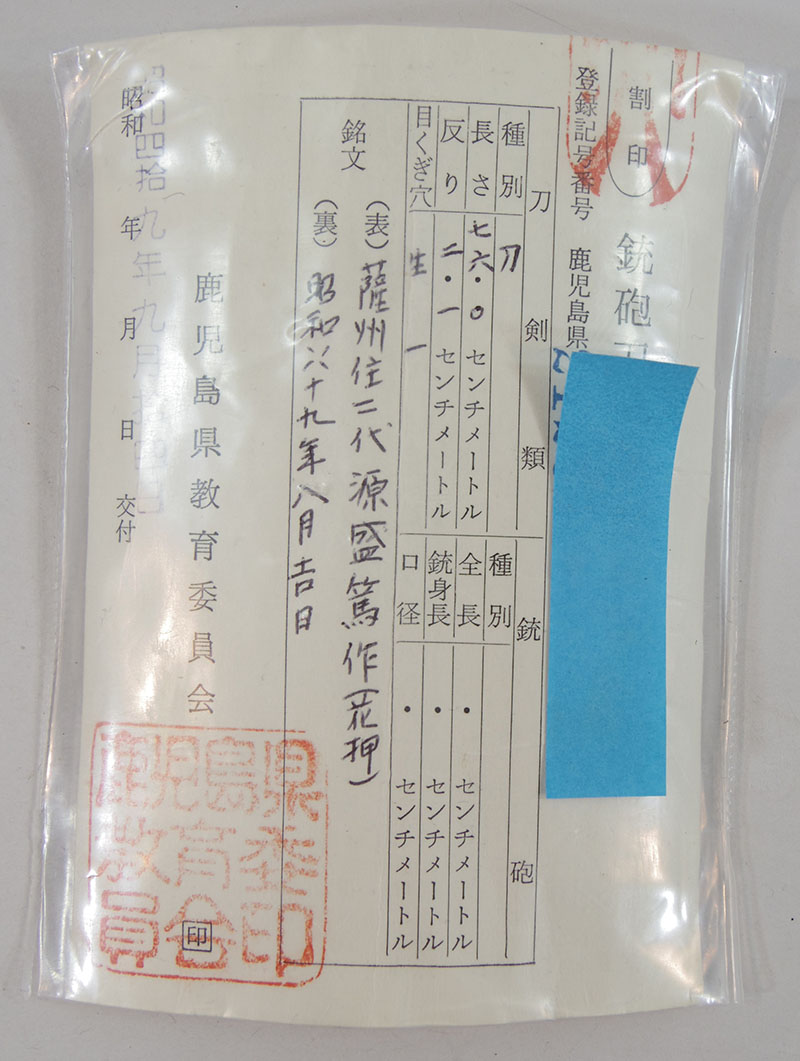 割印
銃砲刀
登録記号番号 鹿児島県
刀剣類
種別 刀
長さ 七六・〇センチメートル
反り 二・一センチメートル
目くぎ穴 生 一
銃砲
種別
全長 ・ センチメートル
銃身長 ・ センチメートル
口径 ・ センチメートル
銘文
(表) 薩州住二代源盛篤作(花押)
(裏) 昭和六十九年八月吉日
鹿児島県教育委員会 印
昭和 年 月 日 交付
鹿児島県教育委員会印